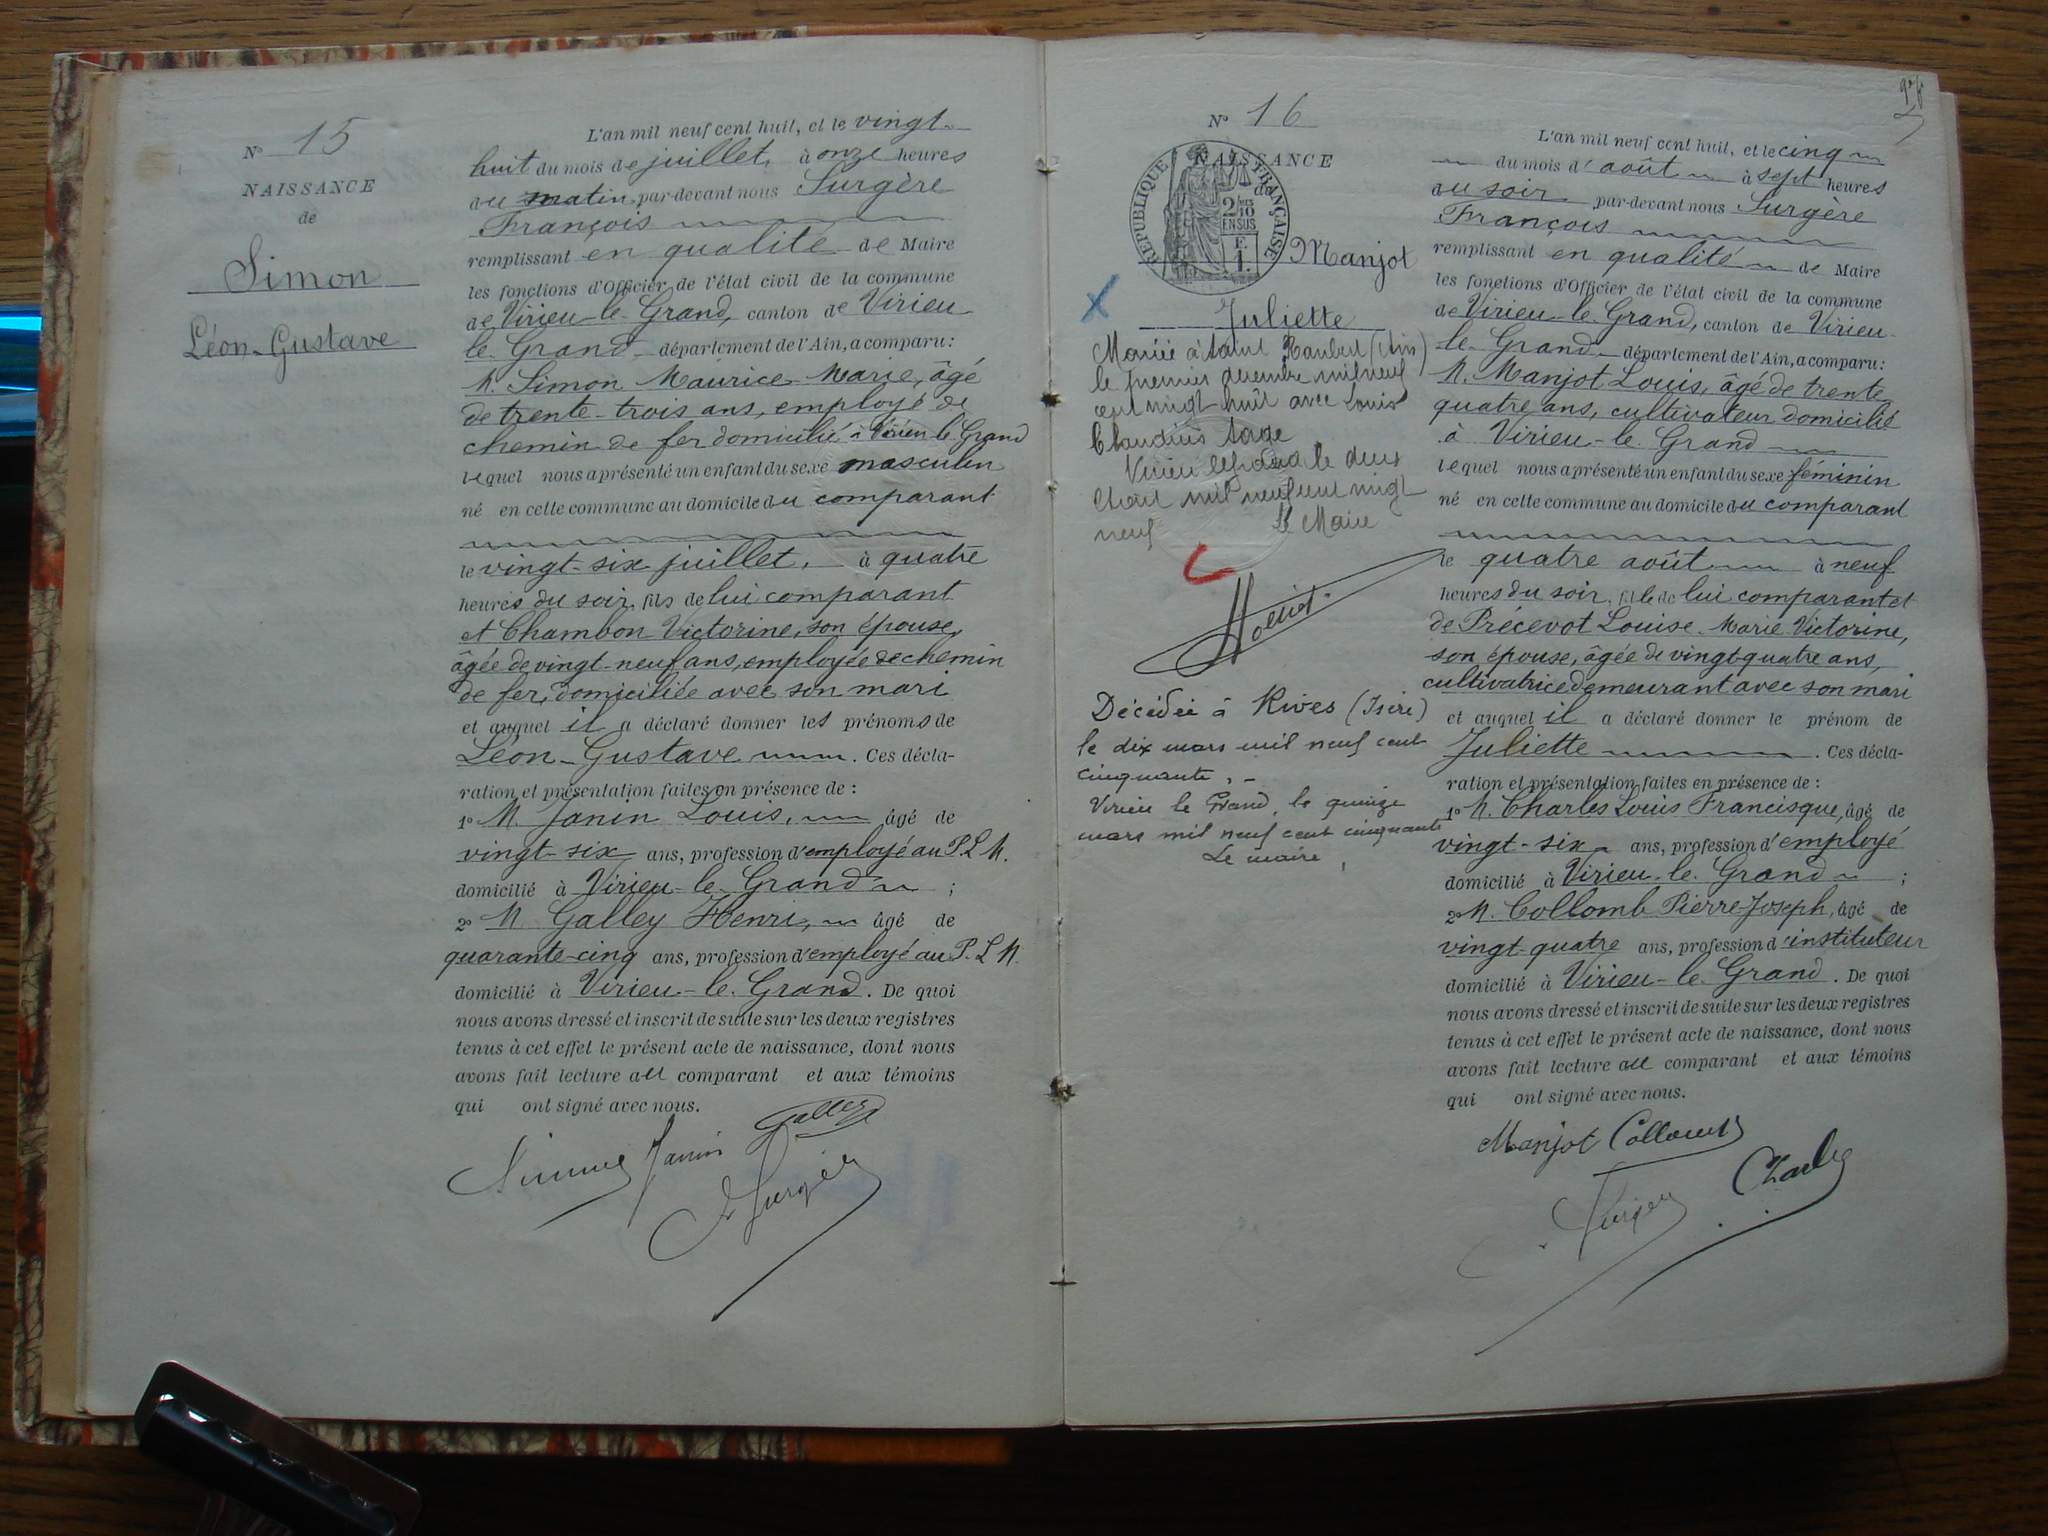 N° 15
NAISSANCE
de
Simon
Léon-Gustave
L'an mil neuf cent huit, et le vingt-
huit du mois de juillet, à onze heures
du matin, par-devant nous Surgère
François
remplissant en qualité de Maire
les fonctions d'Officier de l'état civil de la commune
de Virieu-le-Grand, canton de Virieu-
le-Grand département de l'Ain, a comparu:
M. Simon Maurice-Marie, âgé
de trente-trois ans, employé de
chemin de fer domicilié à Virieu-le-Grand
lequel nous a présenté un enfant du sexe masculin
né en cette commune au domicile du comparant
le vingt-six juillet, à quatre
heures du soir, fils de lui comparant
et Chambon Victorine, son épouse,
âgée de vingt-neuf ans, employée de chemin
de fer, domiciliée avec son mari
et auquel il a déclaré donner les prénoms de
Léon-Gustave. Ces décla-
ration et présentation faites en présence de :
1° M. Janin Louis, âgé de
vingt-six ans, profession d'employé au P.L.M.
domicilié à Virieu-le-Grand ;
2° M Galley Henri, âgé de
quarante-cinq ans, profession d'employé au P.L.M.
domicilié à Virieu-le-Grand. De quoi
nous avons dressé et inscrit de suite sur les deux registres
tenus à cet effet le présent acte de naissance, dont nous
avons fait lecture au comparant et aux témoins
qui ont signé avec nous.
Simon Janin Galley
Surgère
N° 16
NAISSANCE
de
RÉPUBLIQUE FRANÇAISE
2/10
EN SUS
Manjot
Juliette
Mariée à Saint Rambert (Ain)
le premier décembre mil neuf
cent vingt huit avec Louis
Claudius
Virieu le grand le deux
mil neuf cent vingt
neuf Le Maire
Décédée à Rives (Isère)
le dix mars mil neuf cent
cinquante.-
Virieu le Grand, le quinze
mars mil neuf cent cinquante
Le maire,
L'an mil neuf cent huit, et le cinq
du mois d'août à sept heures
du soir par-devant nous Surgère
François
remplissant en qualité de Maire
les fonctions d'Officier de l'état civil de la commune
de Virieu-le-Grand, canton de Virieu-
le-Grand département de l'Ain, a comparu:
M. Manjot Louis, âgé de trente
quatre ans, cultivateur domicilié
à Virieu-le-Grand
lequel nous a présenté un enfant du sexe féminin
né en cette commune au domicile du comparant
le quatre août à neuf
heures du soir, fille de lui comparant et
de Précevot Louise-Marie-Victorine,
son épouse, âgée de vingt-quatre ans,
cultivatrice demeurant avec son mari
et auquel il a déclaré donner le prénom de
Juliette. Ces décla-
ration et présentation faites en présence de :
1° M. Charles Louis Francisque, âgé de
vingt-six ans, profession d'employé
domicilié à Virieu-le-Grand ;
2° M. Collomb Pierre-Joseph, âgé de
vingt-quatre ans, profession d'instituteur
domicilié à Virieu-le-Grand. De quoi
nous avons dressé et inscrit de suite sur les deux registres
tenus à cet effet le présent acte de naissance, dont nous
avons fait lecture au comparant et aux témoins
qui ont signé avec nous.
Manjot Collomb
Surgère Charles